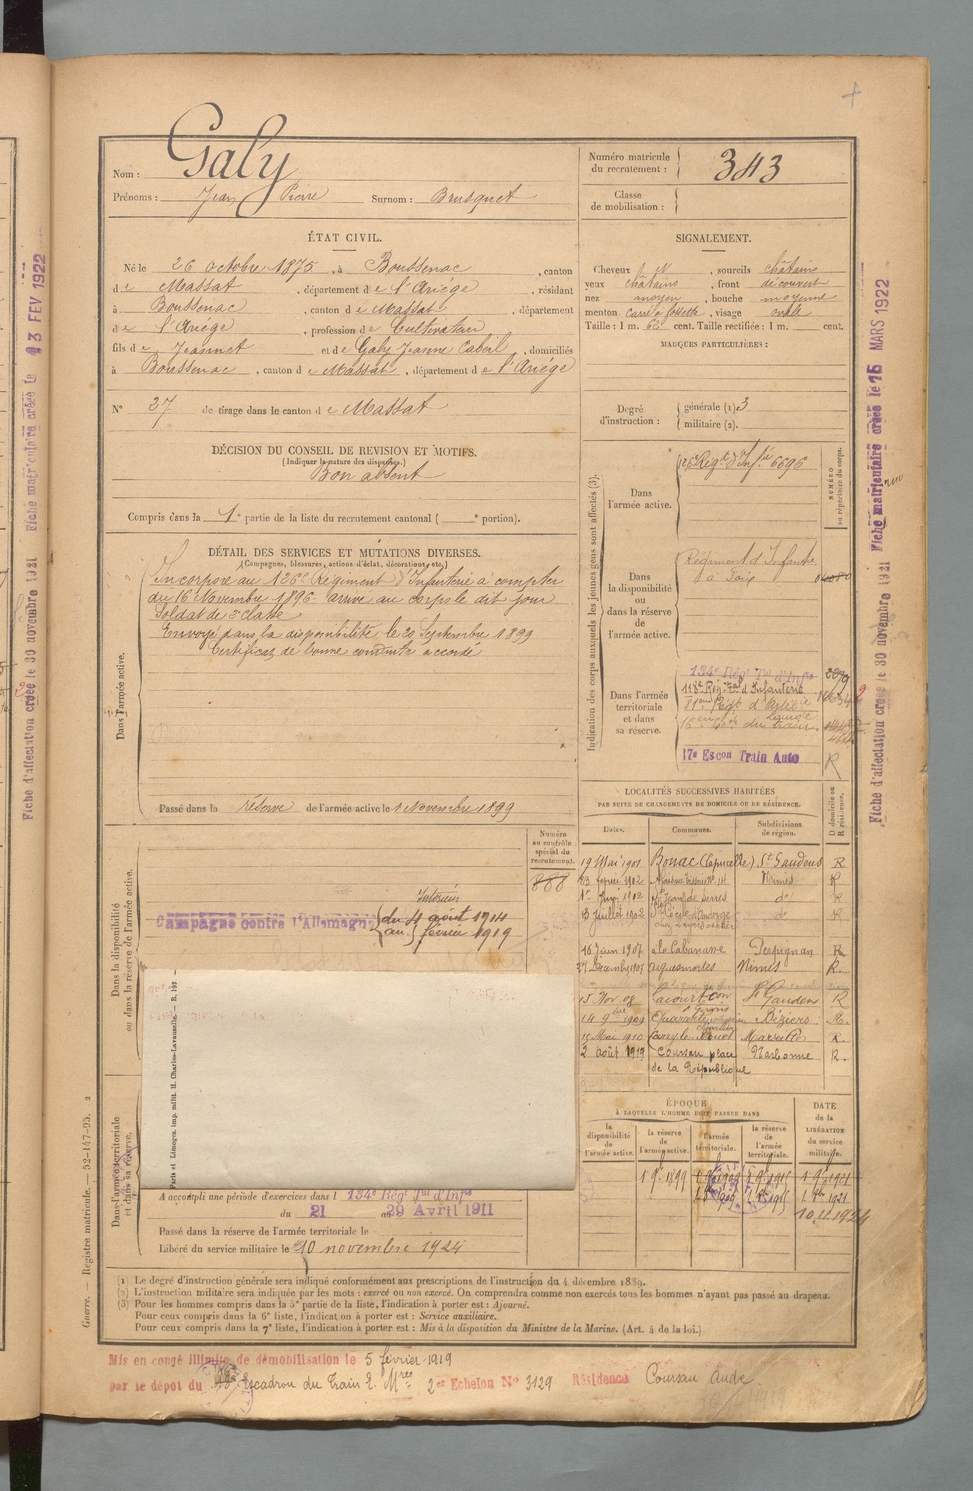 Nom : Galy
Prénoms : Jean Pierre Surnom : Brusquet
Numéro matricule du recrutement : 343
Classe de mobilisation :
ÉTAT CIVIL.
Né le 26 octobre 1875, à Boussenac, canton
de Massat, département de l'Ariège, résidant
à Boussenac, canton de Massat, département
de l'Ariège, profession de Cultivateur
fils de Jeannet et de Galy Jeanne Cabeil, domiciliés
à Boussenac, canton de Massat, département de l'Ariège
N° 37 de tirage dans le canton de Massat
SIGNALEMENT.
Cheveux et N, sourcils châtains
yeux châtains, front découvert
nez moyen, bouche moyenne
menton carré à fossette, visage ovale
Taille : 1 m. cent. Taille rectifiée : 1 m. cent.
MARQUES PARTICULIÈRES :
Degré d'instruction : générale (1) 3
militaire (2).
DÉCISION DU CONSEIL DE REVISION ET MOTIFS.
(Indiquer la nature des dispenses.)
Bon absent
Compris dans la 1e partie de la liste du recrutement cantonal ( e portion).
DÉTAIL DES SERVICES ET MUTATIONS DIVERSES.
(Campagnes, blessures, actions d'éclat, décorations, etc.)
Dans l'armée active.
Incorporé au 126e Régiment d'Infanterie à compter
du 16 Novembre 1896. arrivé au corps le dit jour
Soldat de 2e classe
Envoyé dans la disponibilité le 20 Septembre 1899
Certificat de bonne conduite accordé
Passé dans la réserve de l'armée active le 1 Novembre 1899
Indication des corps auxquels les jeunes gens sont affectés (3).
NUMÉRO au répertoire du corps.
Dans l'armée active.
126e Régt d'Infie 6696
Dans la disponibilité ou dans la réserve de l'armée active.
Régiment d'Infanterie
à Foix
Dans l'armée territoriale et dans sa réserve.
134e Régt Tal d'Infie
118e Régt Tal d'Infanterie
81eme Regt d'Artie
16eme du train
17e Escon Train Auto R
LOCALITÉS SUCCESSIVES HABITÉES
PAR SUITE DE CHANGEMENTS DE DOMICILE OU DE RÉSIDENCE.
Dates. Communes. Subdivisions de région. D domicile ou R résidence.
19 Mai 1901 Bonac St Gaudens R
23 février 1902 Nimes R
1902 St Jean de Serres de R
13 Juillet 1902 de R
16 Juin 1907 La Cabanasse Perpignan R
27 Décembre 1907 Aiguesmortes Nimes R.
15 Nov 08 Lacourt St Gaudens R
14 9bre 1909 Quarante Béziers R.
15 Mai 1910 Carry le Rouet Marseille R.
2 août 1919 Coursan place Narbonne R.
de la République
Dans la disponibilité ou dans la réserve de l'armée active.
Numéro au contrôle spécial du recrutement.
888
Intérieur
Campagne contre l'Allemagne du 4 août 1914
au février 1919
Paris et Limoges, imp. milit. H. Charles-Lavauzelle. — R. 192
Dans l'armée territoriale et dans sa réserve.
A accompli une période d'exercices dans l 134e Régt Tal d'Infie
du 21 au 29 Avril 1911
Passé dans la réserve de l'armée territoriale le
Libéré du service militaire le 10 novembre 1924
ÉPOQUE
À LAQUELLE L'HOMME DOIT PASSER DANS
la disponibilité de l'armée active. la réserve de l'armée active. l'armée territoriale. la réserve de l'armée territoriale. DATE de la LIBÉRATION du service militaire.
1 9e 1899
10.11.1924
(1) Le degré d'instruction générale sera indiqué conformément aux prescriptions de l'instruction du 4 décembre 1889.
(2) L'instruction militaire sera indiquée par les mots : exercé ou non exercé. On comprendra comme non exercés tous les hommes n'ayant pas passé au drapeau.
(3) Pour les hommes compris dans la 5e partie de la liste, l'indication à porter est : Ajourné.
Pour ceux compris dans la 6e liste, l'indication à porter est : Service auxiliaire.
Pour ceux compris dans la 7e liste, l'indication à porter est : Mis à la disposition du Ministre de la Marine. (Art. 4 de la loi.)
Mis en congé illimité de démobilisation le 5 février 1919
par le dépôt du 16e Escadron du Train 2e Echelon N° 3129 Résidence Coursan Aude
Guerre. — Registre matricule. — 52-147-95. 2
Fiche d'affectation créée le 30 novembre 1921 Fiche matriculaire créée le 13 FEV 1922
Fiche d'affectation créée le 30 novembre 1921 Fiche matriculaire créée le 15 MARS 1922